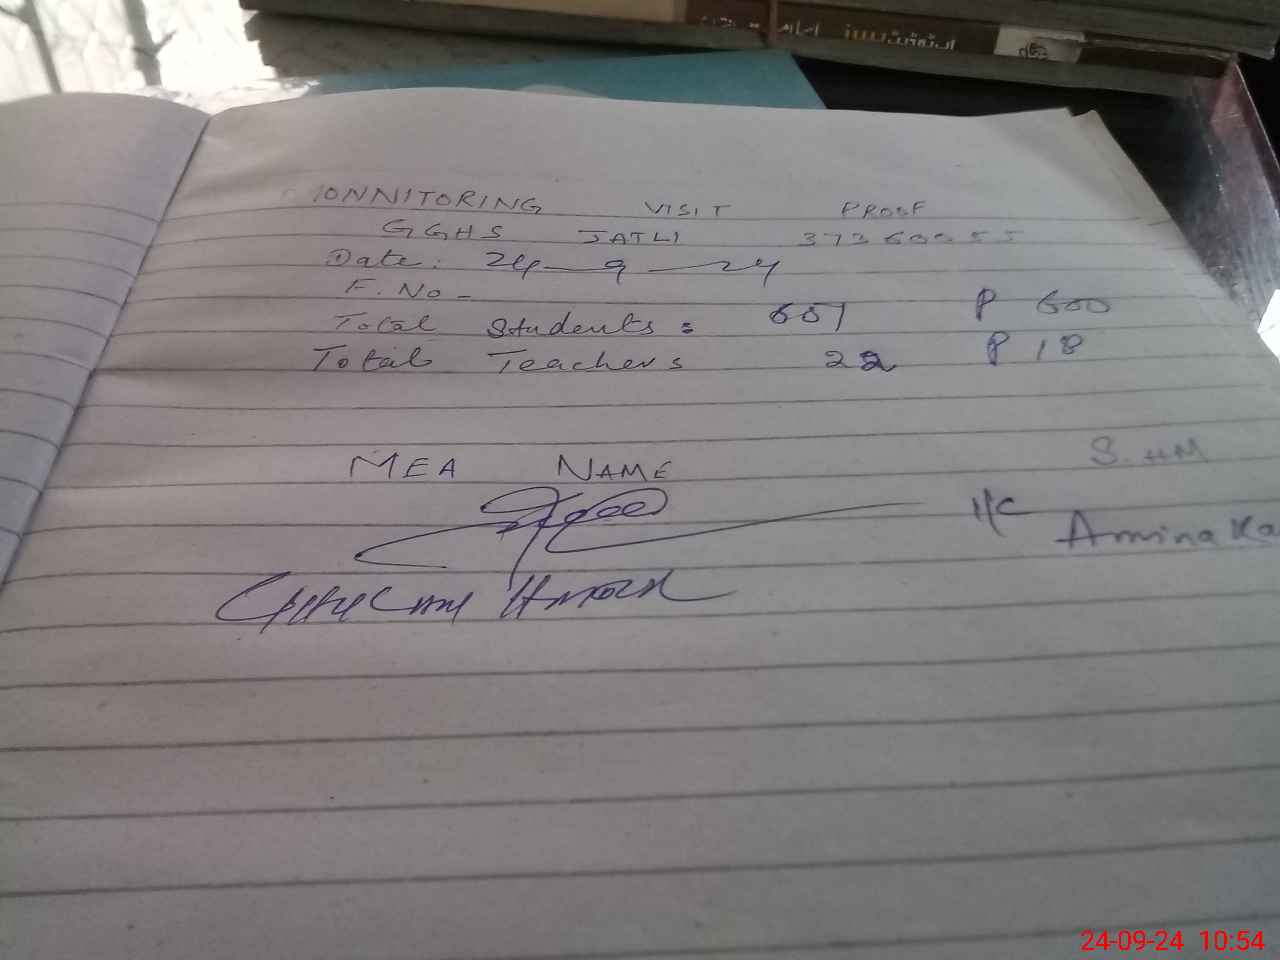 IONNITORING VISIT PROOF
GGHS JATLI 37360055
Date: 24-9-24
F. No -
Total Students: 601 P 600
Total Teachers 22 P 18
MEA NAME
S.HM
I/C Amina Ka
24-09-24 10:54